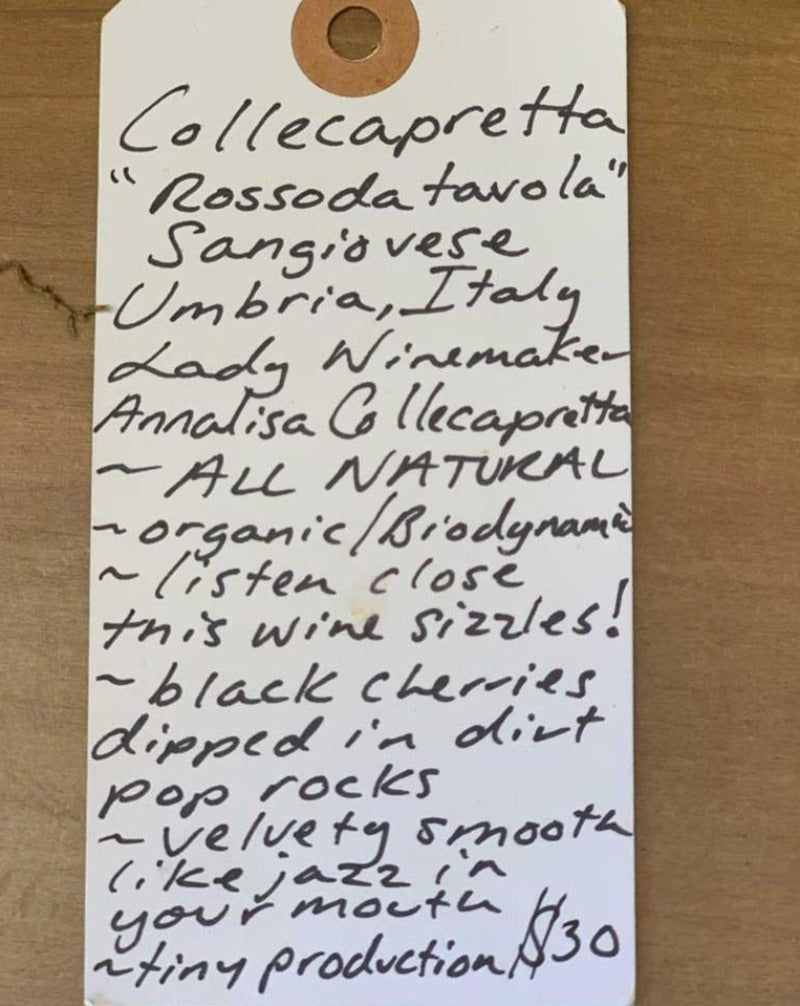 Collecapretta
"Rosso da tavola"
Sangiovese
Umbria, Italy
Lady Winemaker
Annalisa Collecapretta
~ ALL NATURAL
~ organic/Biodynamic
~ listen close
this wine sizzles!
~ black cherries
dipped in dirt
pop rocks
~ velvety smooth
like jazz in
your mouth
~ tiny production $30